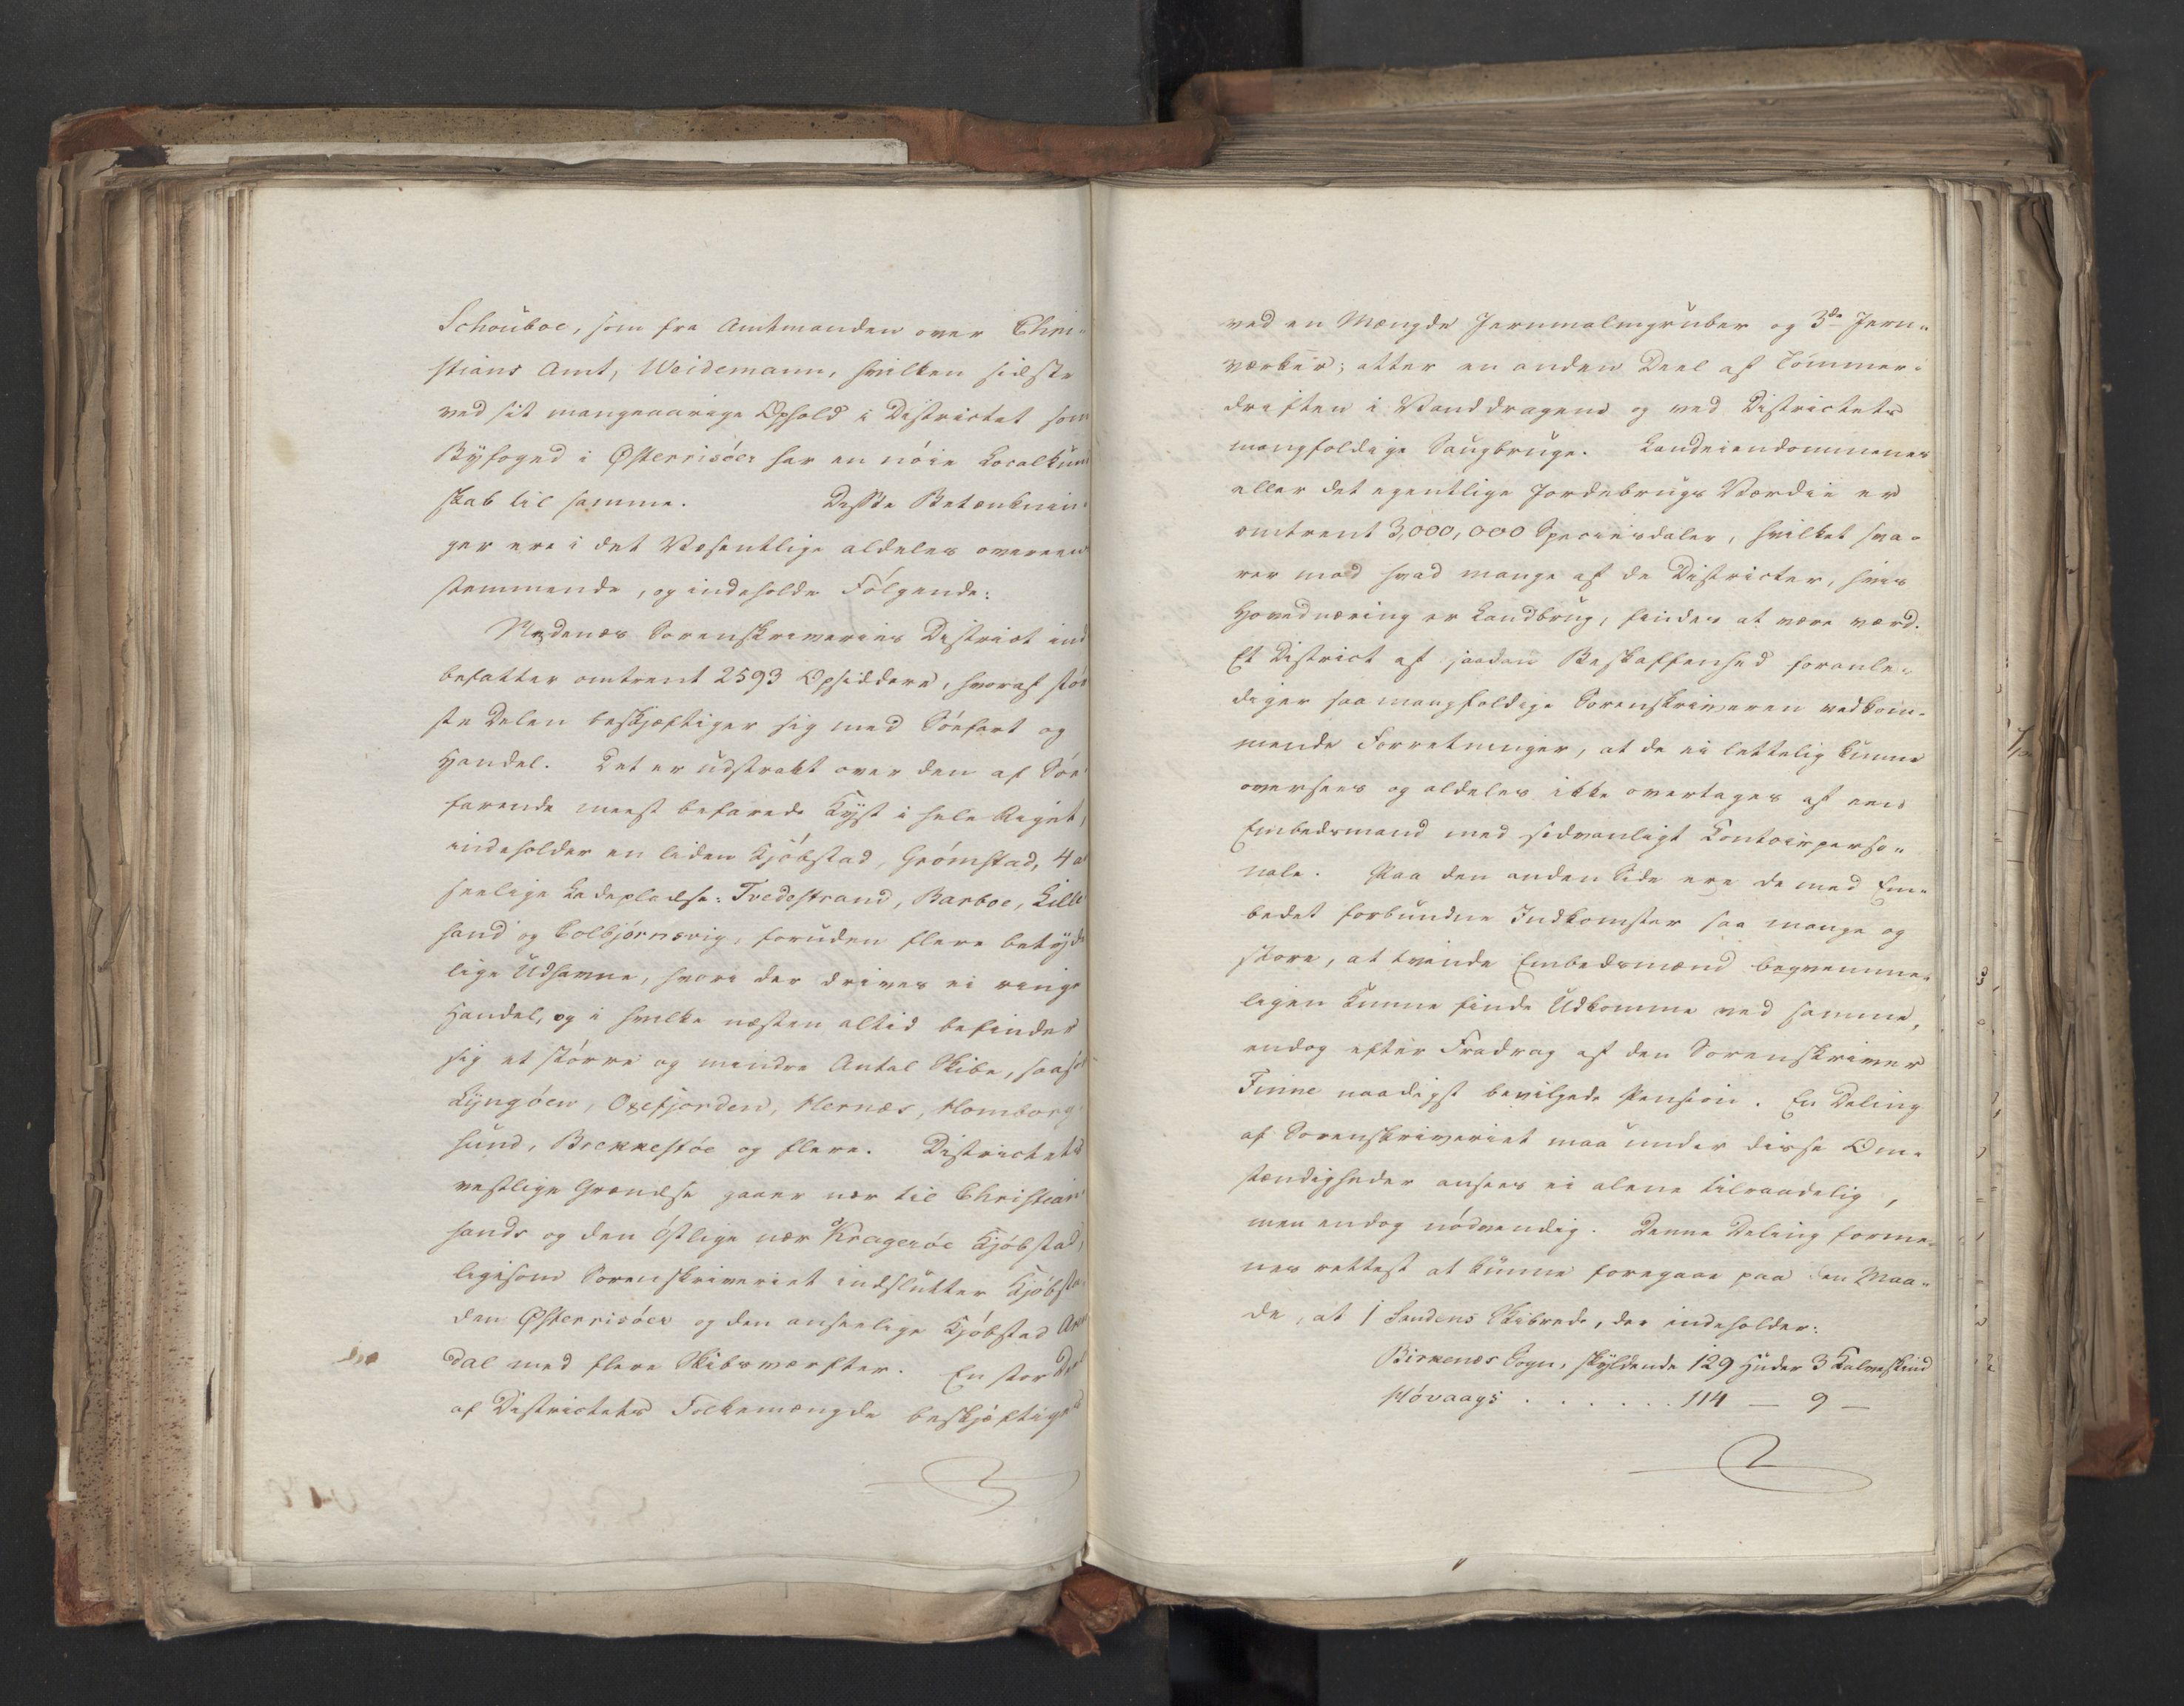 Schouboe, som fra Amtmanden over Chri-
stians Amt, Weidemann, hvilken sidste
ved sit mangeaarige Ophold i Districtet som
Byfoged i Østerrisöer har en nöie Localkund
skab til samme. Disse Betænknin-
ger ere i det Væsentlige aldeles overeens
stemmende, og indeholde Fölgende:
Nedenæs Sorenskriveries District ind
befatter omtrent 2593 Opsiddere, hvoraf stör
ste Delen beskjæftiger sig med Söefart og
Handel. Det er udstrakt over den af Söe
farende meest befarede Kyst i hele Riget,
indeholder en liden Kjöbstad, Grömstad, 4 an
seelige Ladepladse: Tvedestrand, Barboe, Lille
sand og Colbjörnsvig, foruden flere betyde
lige Udhavne, hvori der drives ei ringe
Handel, og i hvilke næsten altid befinder
sig et större og mindre Antal Skibe, saasom
Lyngöen, Oxefjorden, Hernæs, Homborg-
sund, Brekkestöe og flere. Districtets
vestlige Grændse gaaer nær til Christian-
sands og den östlige nær Krageröe Kjöbstad,
ligesom Sorenskriveriet indslutter Kjöbsta-
den Østerrisöer og den anseelige Kjöbstad Aren
dal med flere Skibsværfter. En stor Deel
af Districtets Folkemængde beskjæftiges
ved en Mængde Jernmalmgruber og 3de Jern-
værker; atter en anden Deel af Tömmer-
driften i Vanddragene og ved Districtets
mangfoldige Saugbruge. Landeiendommenes
eller det egentlige Jordebrugs Værdie er
omtrent 3,000,000 Speciesdaler, hvilket sva-
rer mod hvad mange af de Districter, hvis
Hovednæring er Landbrug, findes at være værd.
Et District af saadan Beskaffenhed foranle-
diger saa mangfoldige Sorenskriveren vedkom-
mende Forretninger, at de ei lettelig kunne
oversees og aldeles ikke overtages af een
Embedsmand med sedvanligt Contoirperso-
nale. Paa den anden Side ere de med Em-
bedet forbundne Indkomster saa mange og
store, at tvende Embedsmænd beqvemme-
ligen kunne finde Udkomme ved samme,
endog efter Fradrag af den Sorenskriver
Finne naadigst bevilgede Pension. En Deling
af Sorenskriveriet maa under disse Om-
stændigheder ansees ei alene tilraadelig,
men endog nödvendig. Denne Deling forme-
nes rettest at kunne foregaae paa den Maa-
de, at Sandens Skibrede, der indeholder:
Birkenæs Sogn, skyldende 129 Huder 3 Kalveskind
Hövaags . . . . . . 114 — 9 —